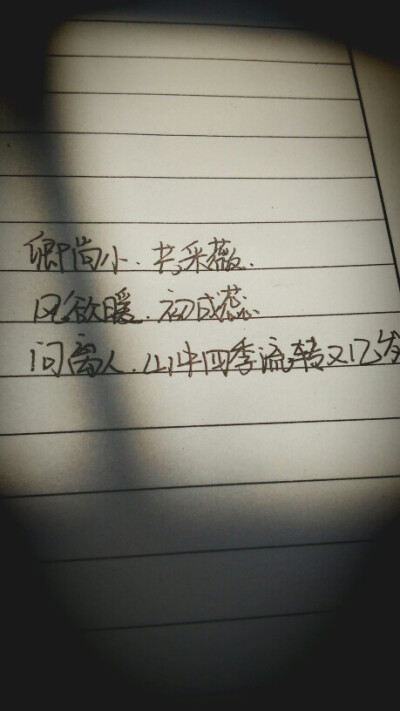 卿尚小.共采薇.
风欲暖.初成蕊.
问离人.山中四季流转又几岁